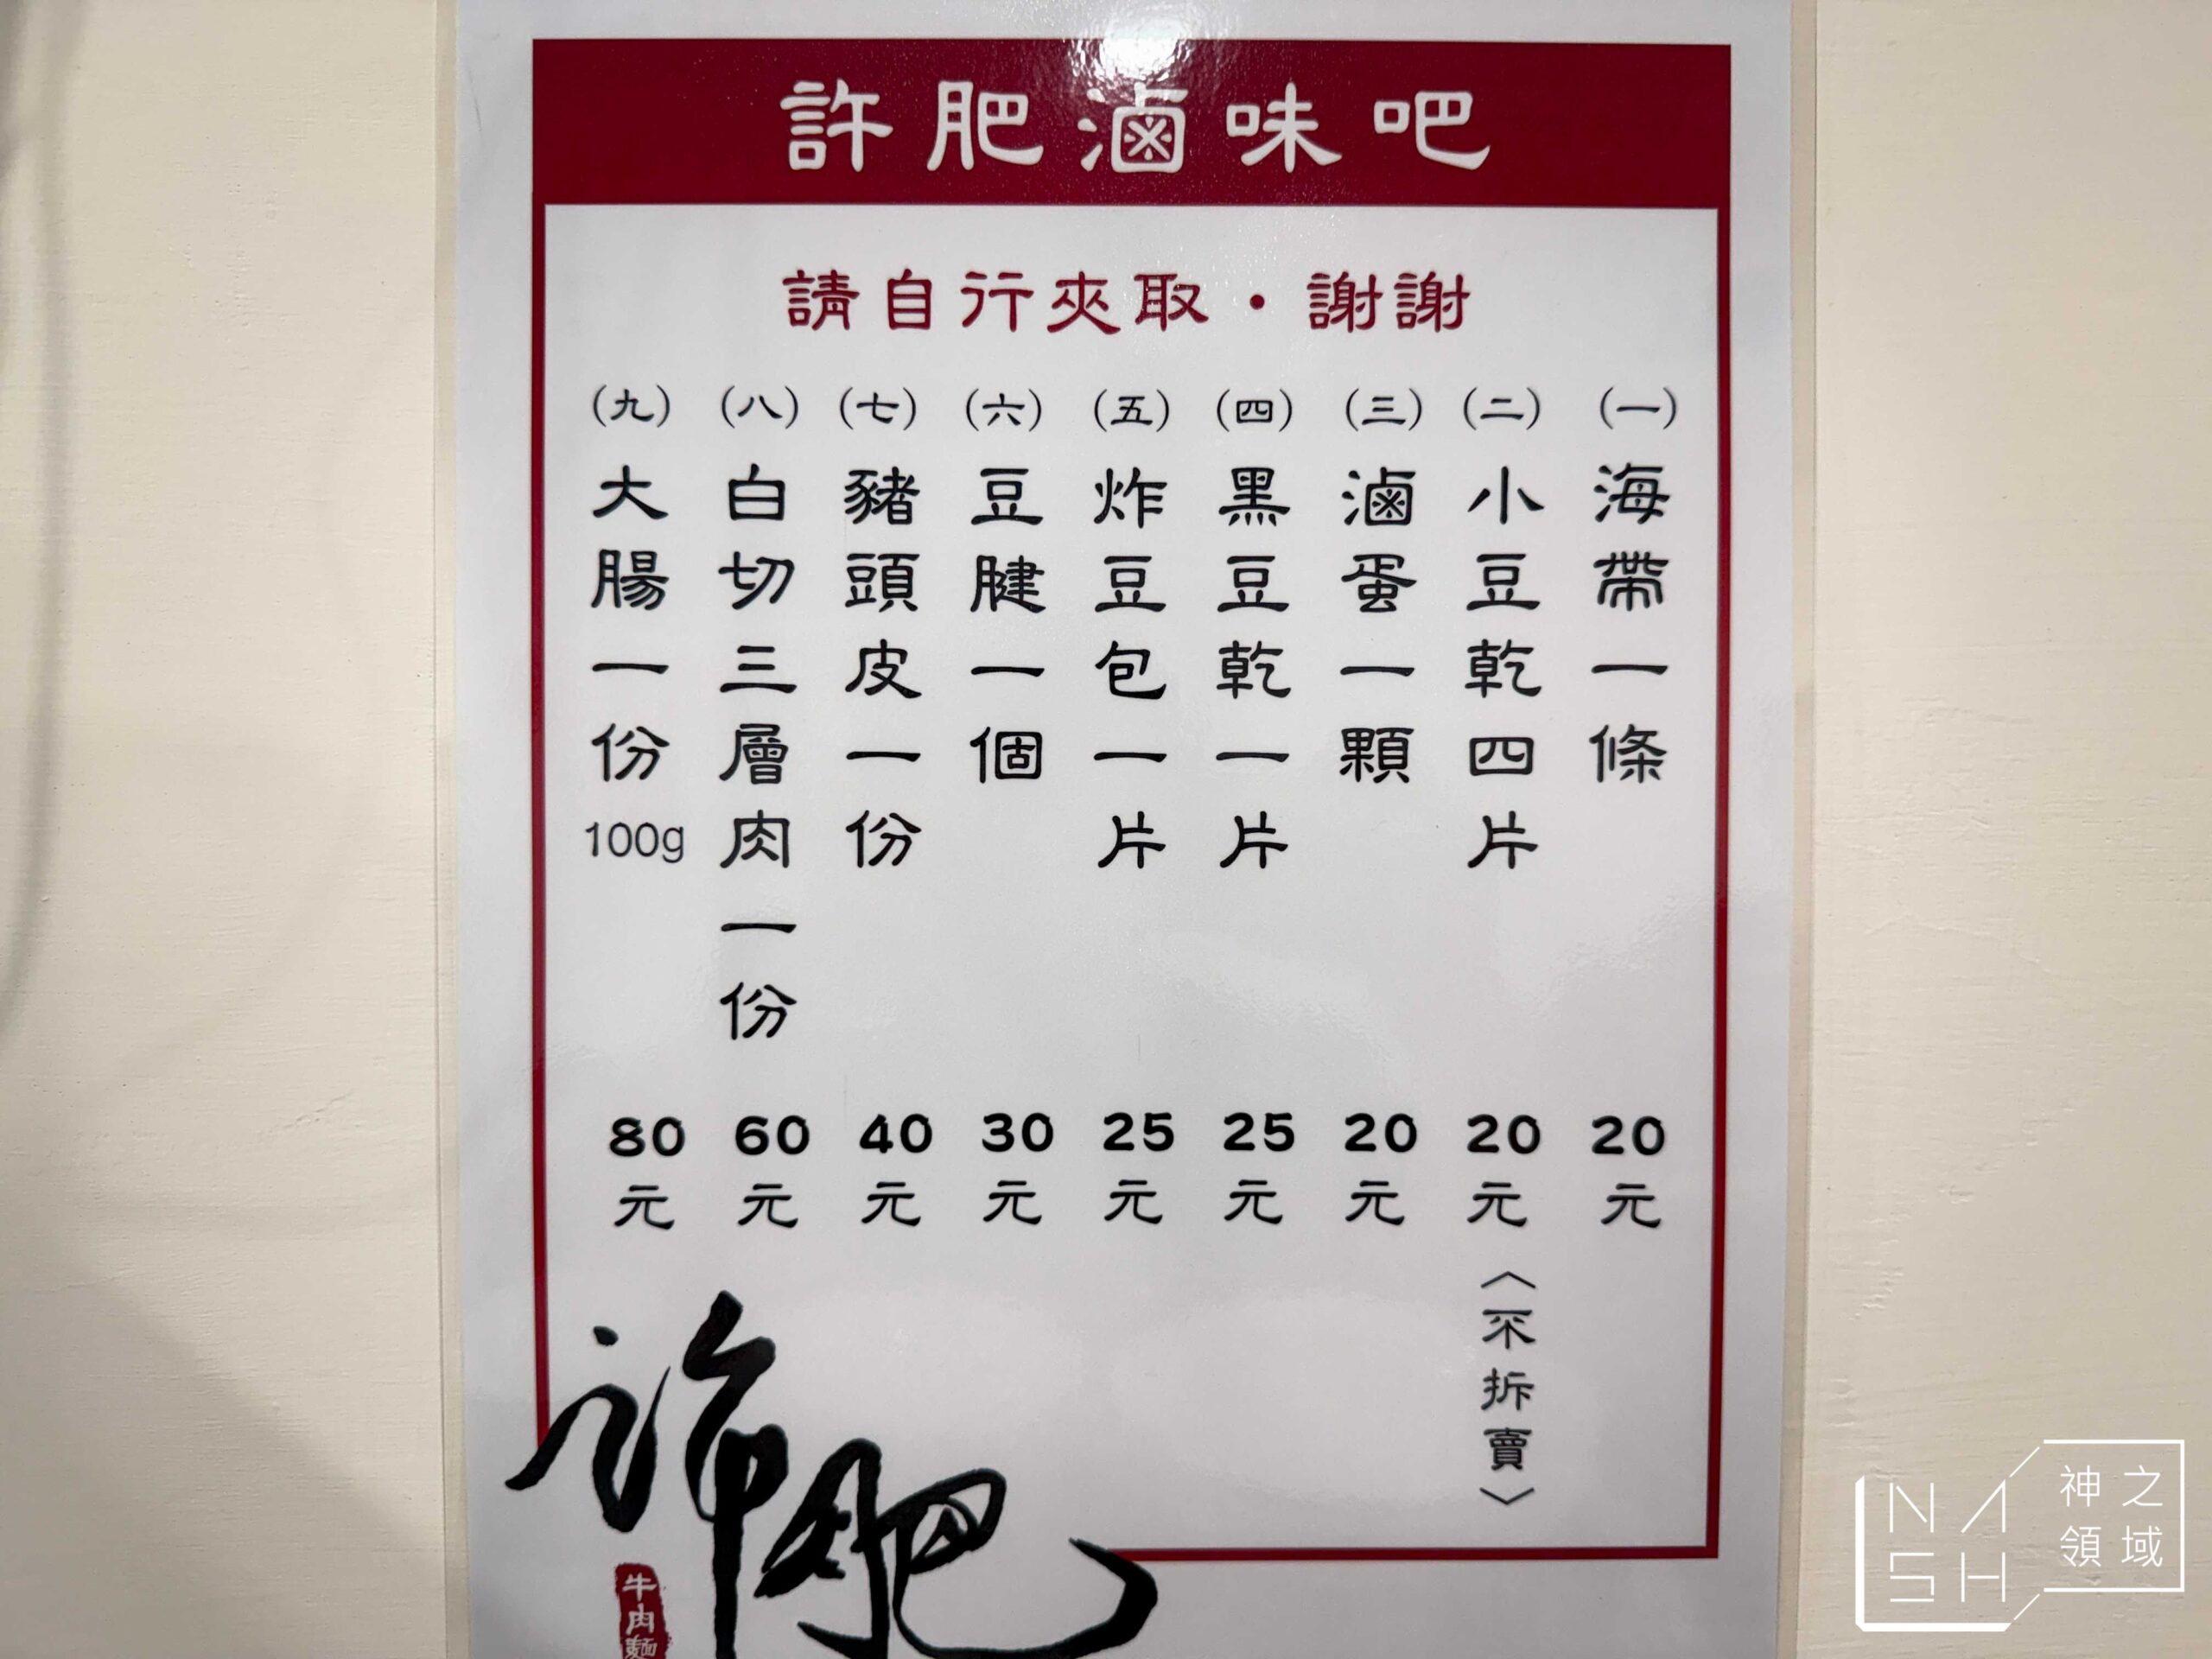 許肥滷味吧
請自行夾取・謝謝
(一)海帶一條 20元
(二)小豆乾四片 20元〈不拆賣〉
(三)滷蛋一顆 20元
(四)黑豆乾一片 25元
(五)炸豆包一片 25元
(六)豆腱一個 30元
(七)豬頭皮一份 40元
(八)白切三層肉一份 60元
(九)大腸一份100g 80元
許肥
牛肉麵
NASH
神之領域